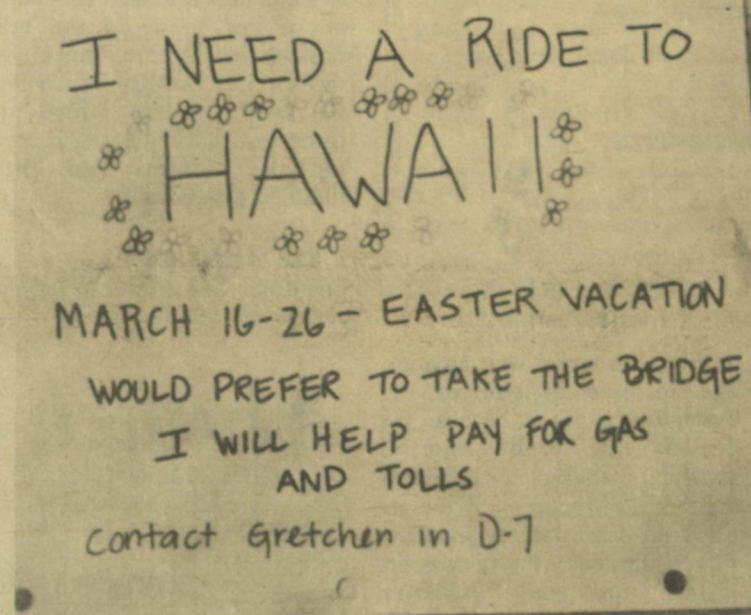 I NEED A RIDE TO
HAWAII
MARCH 16-26 - EASTER VACATION
WOULD PREFER TO TAKE THE BRIDGE
I WILL HELP PAY FOR GAS
AND TOLLS
Contact Gretchen in D-7